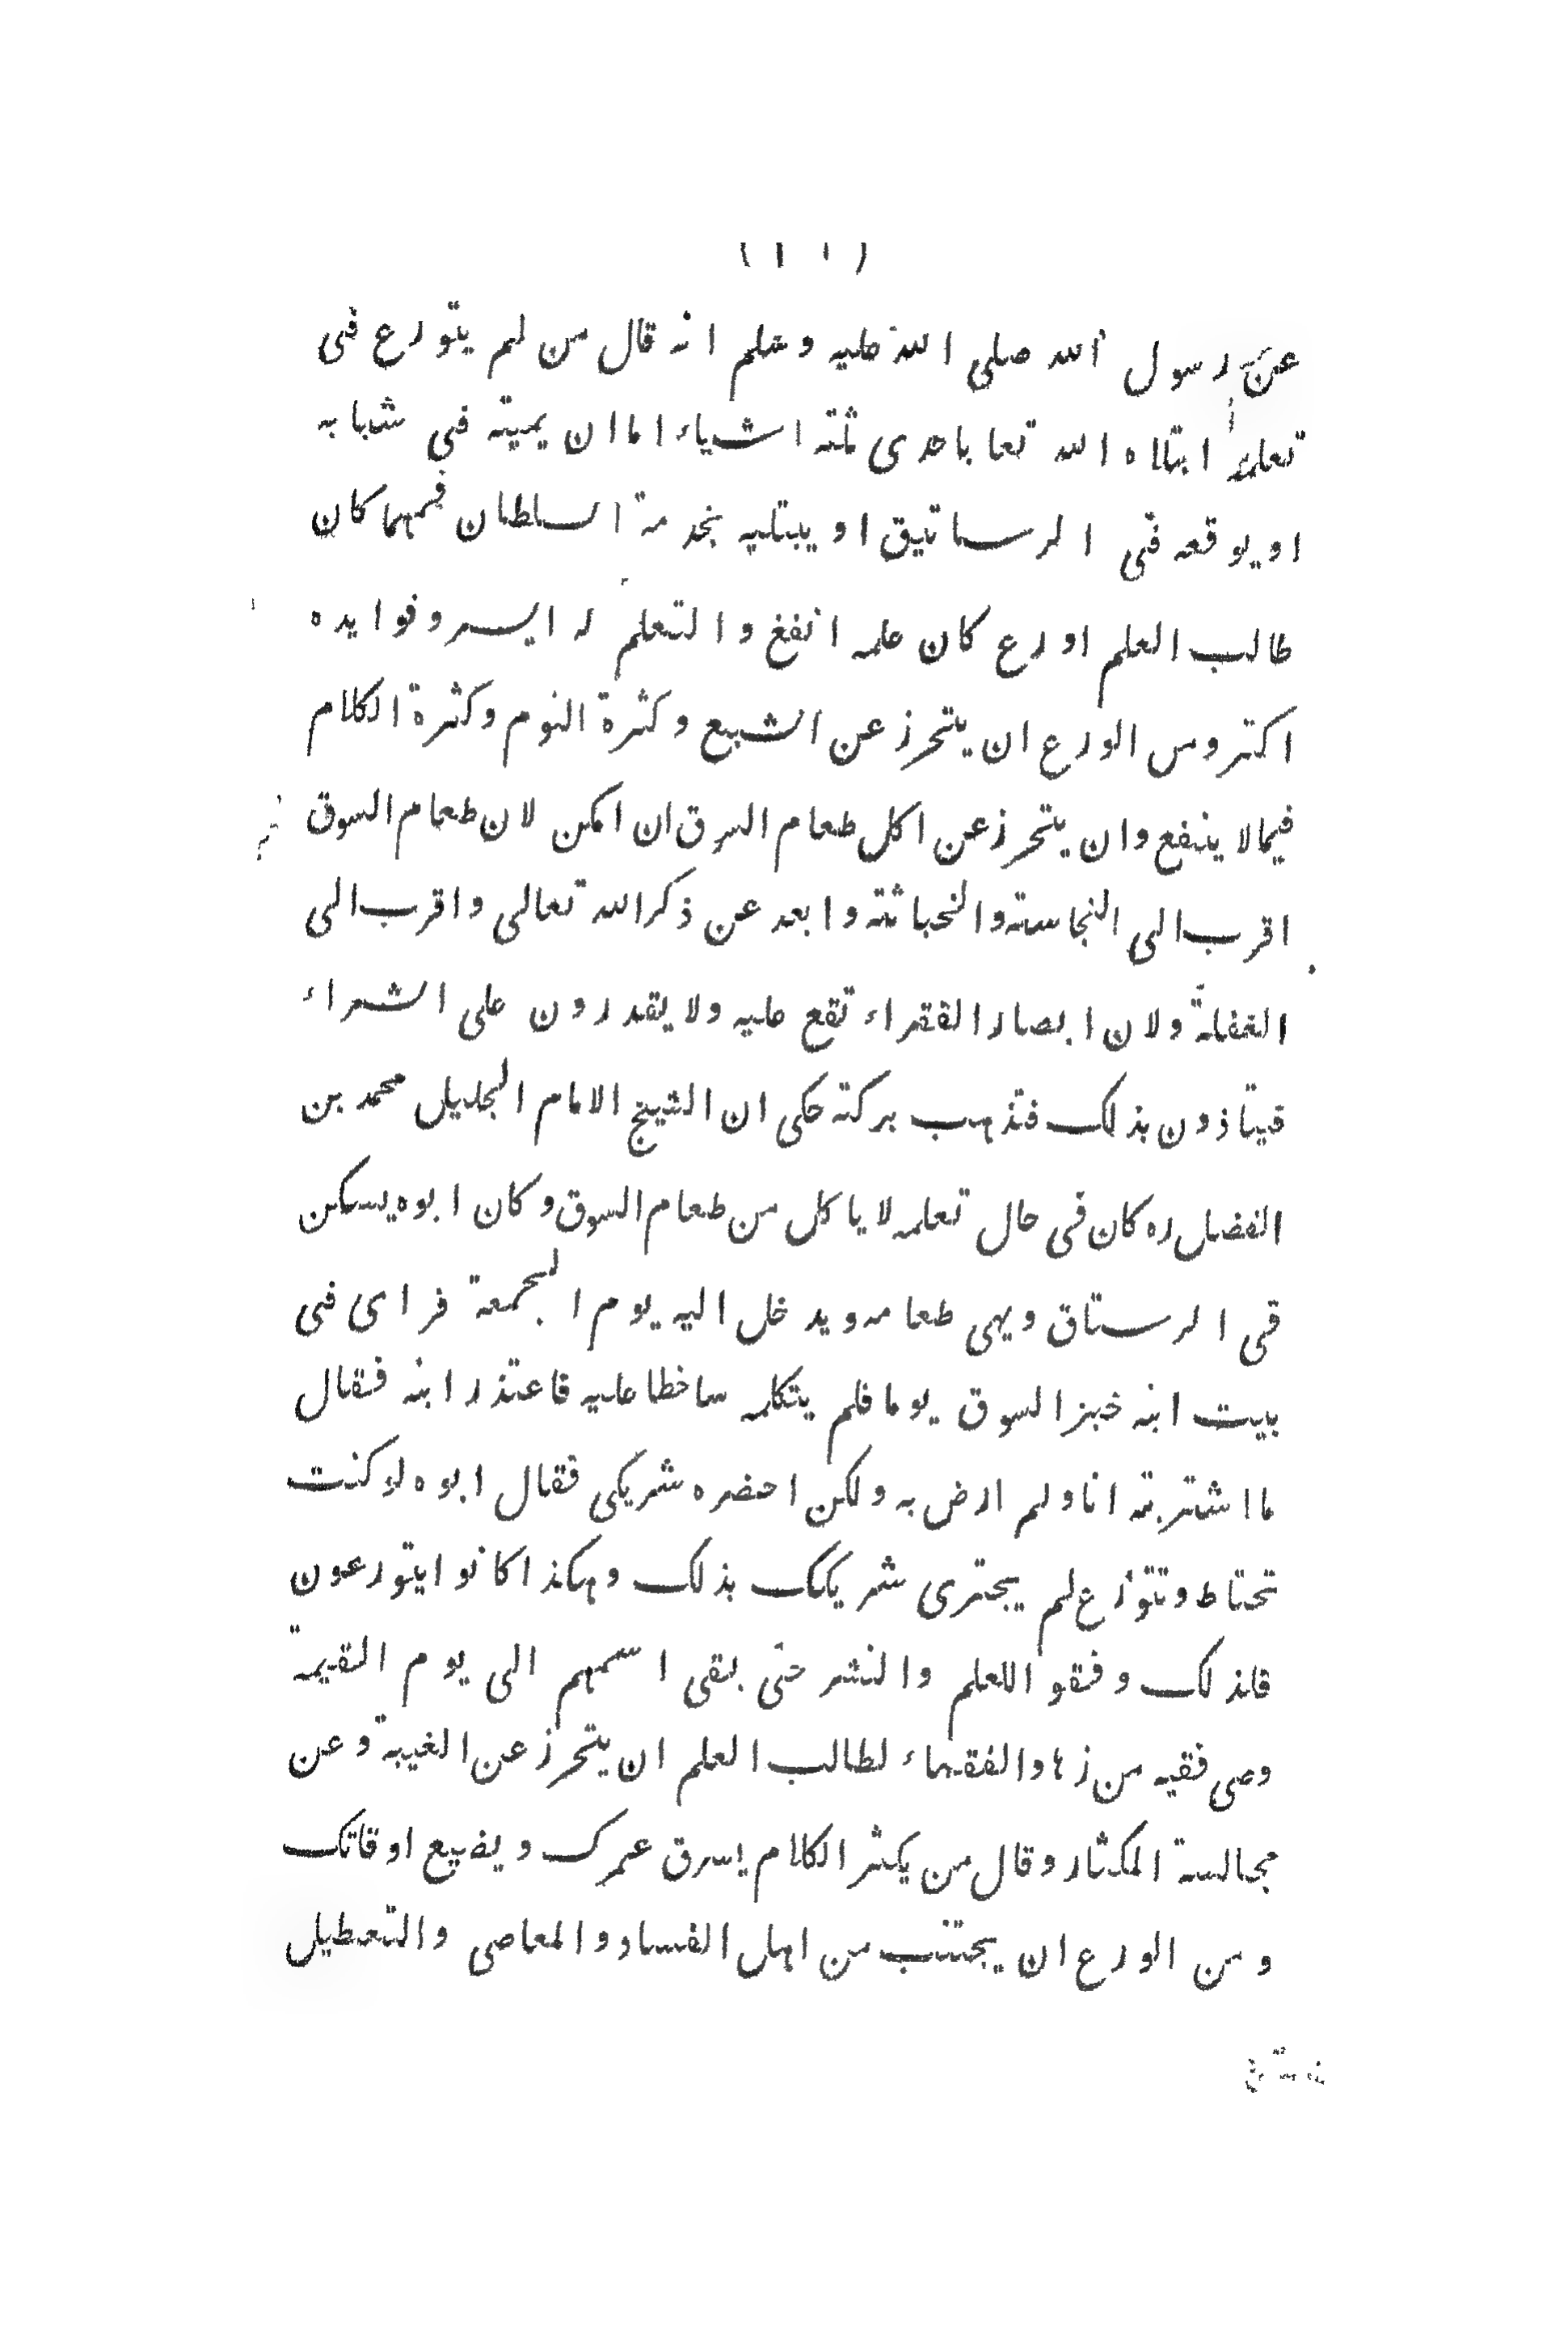 عن رسول الله صلى الله عليه وسلم انه قال من لم يتورع فى
تعلمه ابتلاه الله تعا باحدى ثلثه اشياء اما ان يميته فى شبابه
او يوقعه فى الرساتيق او يبتليه بخدمة السلطان فمهما كان
طالب العلم اورع كان علمه انفع والتعلم له ايسر وفوايده
اكثر ومن الورع ان يتحرز عن الشبع وكثرة النوم وكثرة الكلام
فيما لا ينفع وان يتحرز عن اكل طعام السوق ان امكن لان طعام السوق
اقرب الى النجاسته والخباثته وابعد عن ذكر الله تعالى واقرب الى
الغفلة ولان ابصار الفقراء تقع عليه ولا يقدرون على الشراء
فيتاذون بذلك فتذهب بركته حكى ان الشيخ الامام الجليل محمد بن
الفضل ره كان فى حال تعلمه لا ياكل من طعام السوق وكان ابوه يسكن
فى الرستاق ويهى طعامه ويدخل اليه يوم الجمعة فراى فى
بيت ابنه خبز السوق يوما فلم يتكلمه ساخطا عليه فاعتذر ابنه فقال
ما اشتريته انا ولم ارض به ولكن احضره شريكى فقال ابوه لو كنت
تحتاط وتتورع لم يجترى شريكك بذلك وهكذا كانوا يتورعون
فلذلك وفقو اللعلم والنشر حتى بقى اسمهم الى يوم القيمة
وصى فقيه من زهاد الفقهاء لطالب العلم ان يتحرز عن الغيبة وعن
مجالسة المكثار وقال من يكثر الكلام يسرق عمرك ويضيع اوقاتك
ومن الورع ان يجتنب من اهل الفساد والمعاصى والتعطيل